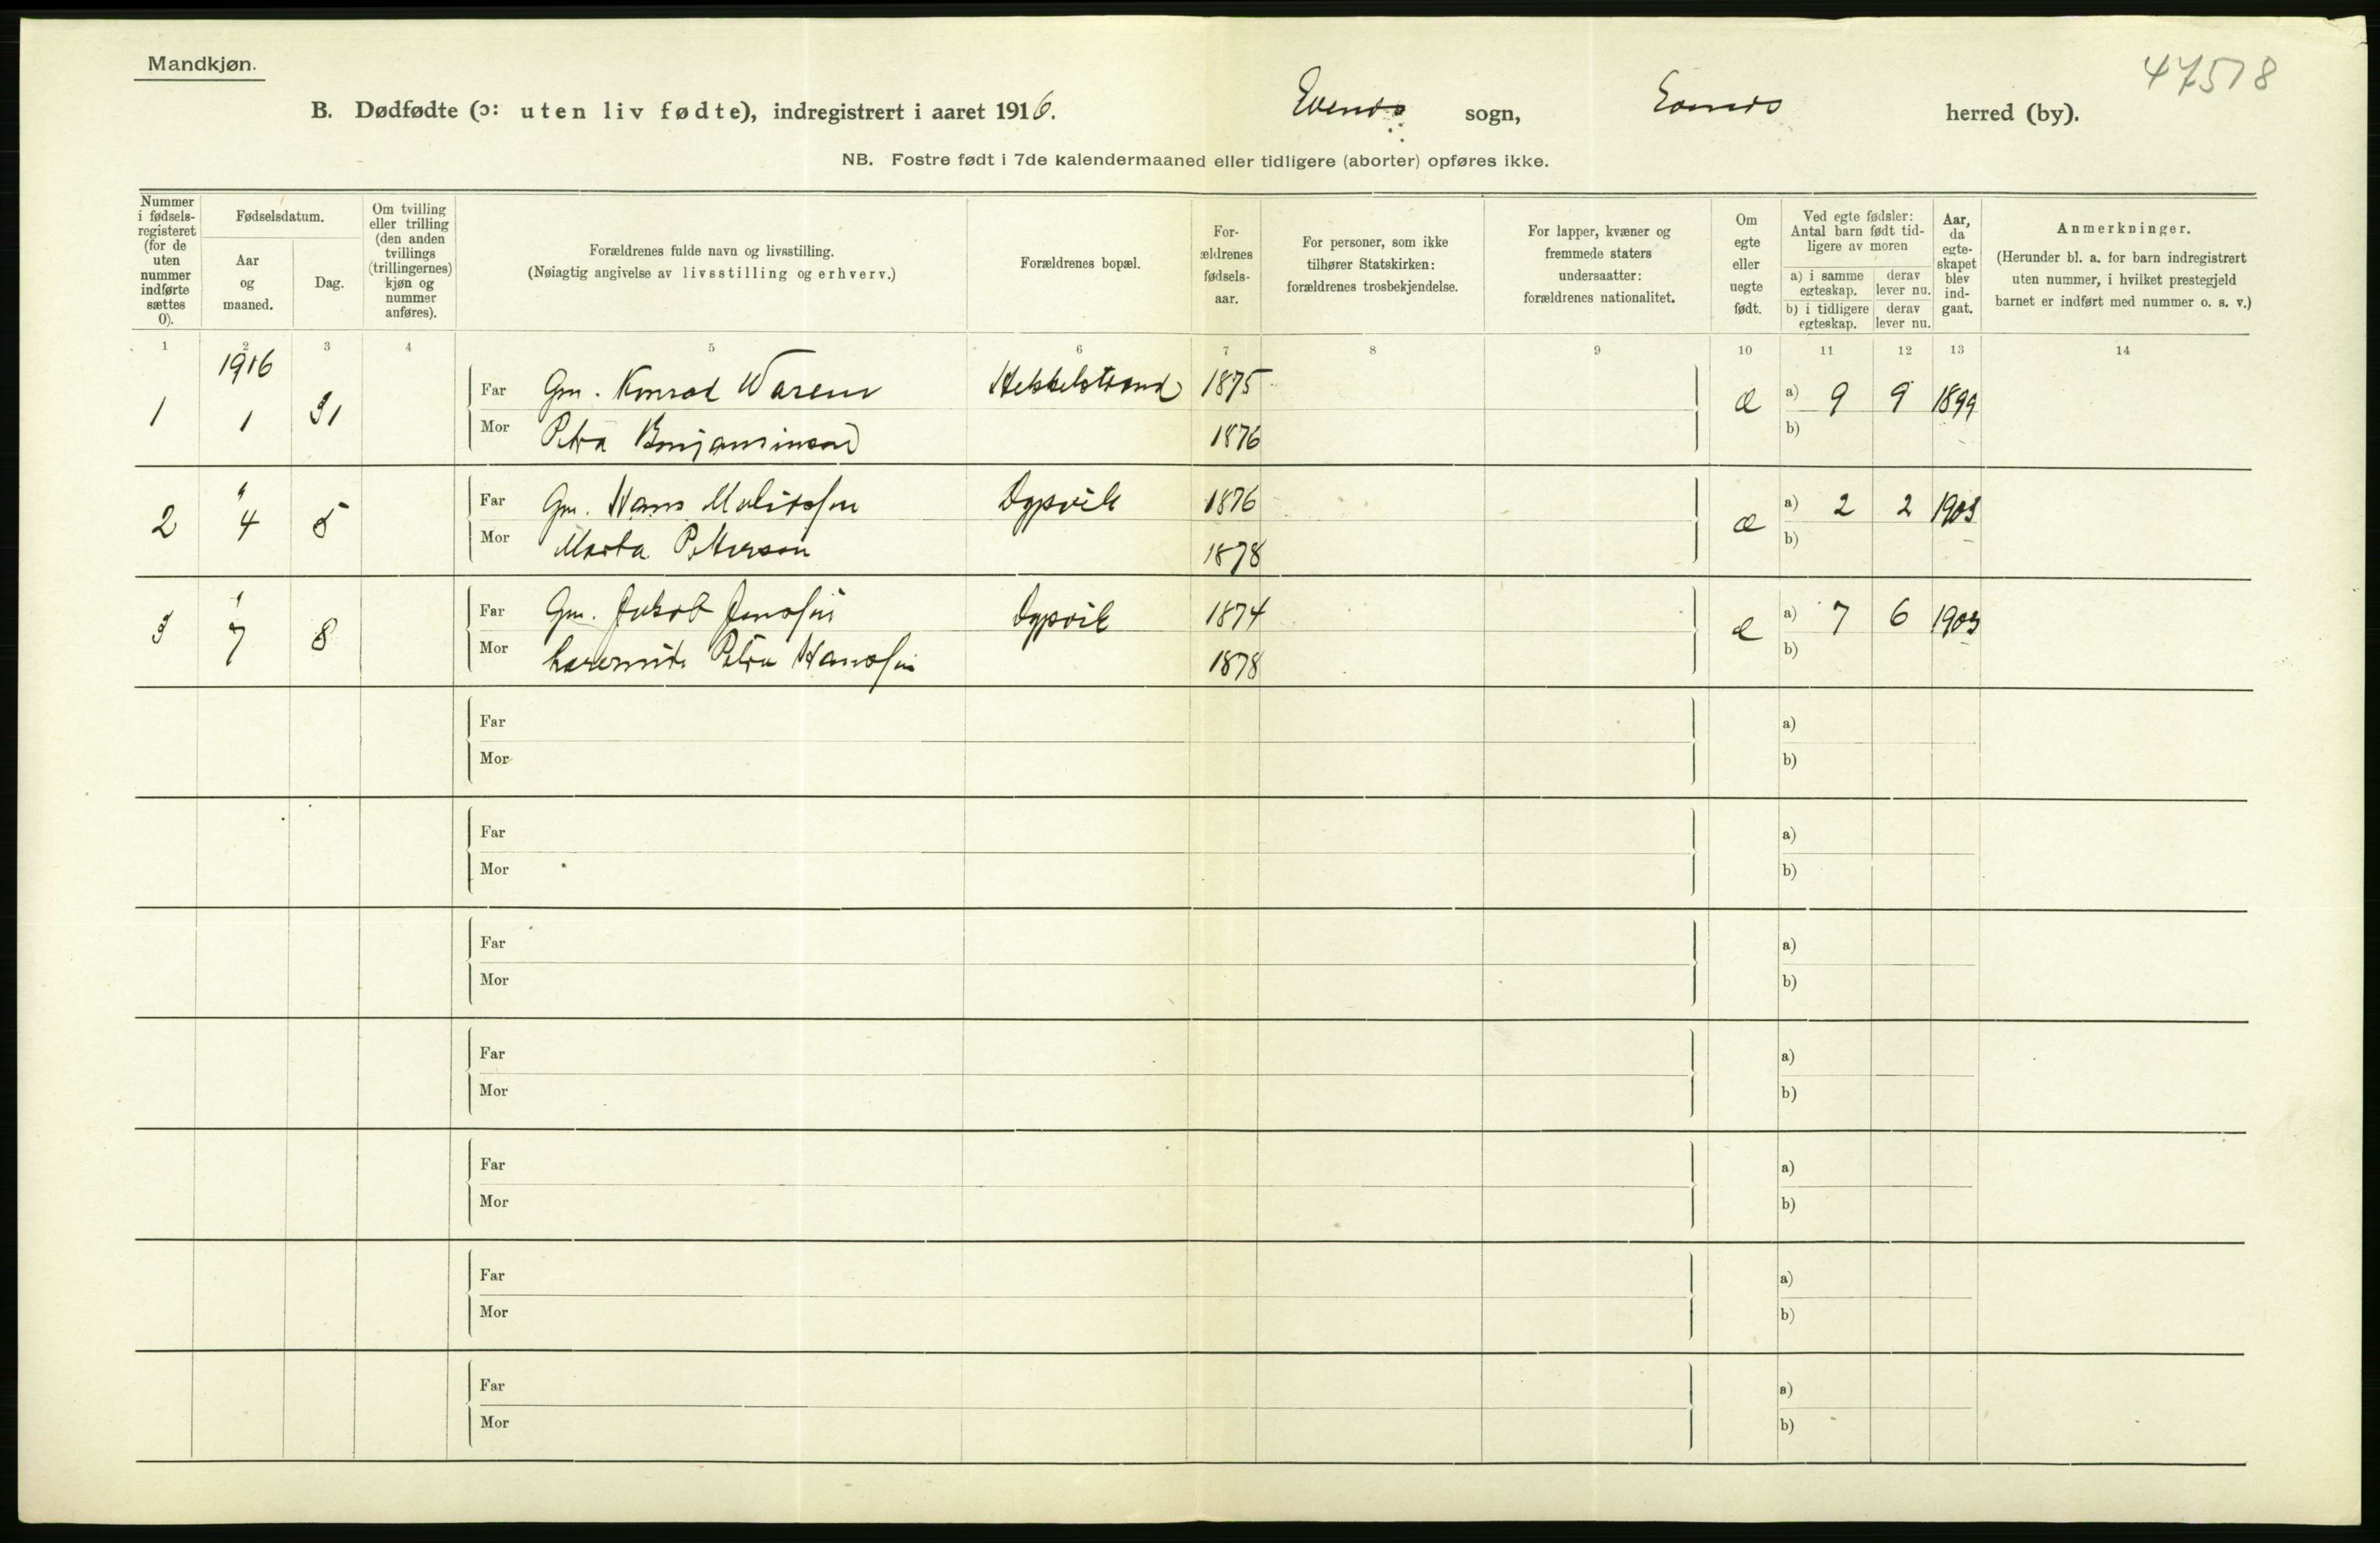 Mandkjøn.
47518
B. Dødfødte (ɔ: uten liv fødte), indregistrert i aaret 1916. Evenes sogn, Evenes herred (by).
NB. Fostre født i 7de kalendermaaned eller tidligere (aborter) opføres ikke.
Nummer i fødsels-registeret (for de uten nummer indførte sættes 0).
Fødselsdatum.
Aar og maaned.
Dag.
Om tvilling eller trilling (den anden tvillings (trillingernes) kjøn og nummer anføres).
Forældrenes fulde navn og livsstilling.
(Nøiagtig angivelse av livsstilling og erhverv.)
Forældrenes bopæl.
For-ældrenes fødsels-aar.
For personer, som ikke tilhører Statskirken: forældrenes trosbekjendelse.
For lapper, kvæner og fremmede staters undersaatter: forældrenes nationalitet.
Om egte eller uegte født.
Ved egte fødsler: Antal barn født tid-ligere av moren
a) i samme egteskap. derav lever nu.
b) i tidligere egteskap. derav lever nu.
Aar, da egte-skapet blev ind-gaat.
Anmerkninger.
(Herunder bl. a. for barn indregistrert uten nummer, i hvilket prestegjeld barnet er indført med nummer o. s. v.)
1 2 3 4 5 6 7 8 9 10 11 12 13 14
1916
1 1 31 Far Gm. Konrad Warem 1875 æ a) 9 9 1899
Mor Petra Benjaminsen 1876 b)
"
2 4 5 Far Gm. Hans 1876 æ a) 2 2 1903
Mor Marta Pettersen 1878 b)
"
3 7 8 Far Gm. Jakob Jensen 1874 æ a) 7 6 1903
Mor Petra Hansen 1878 b)
Far a)
Mor b)
Far a)
Mor b)
Far a)
Mor b)
Far a)
Mor b)
Far a)
Mor b)
Far a)
Mor b)
Far a)
Mor b)